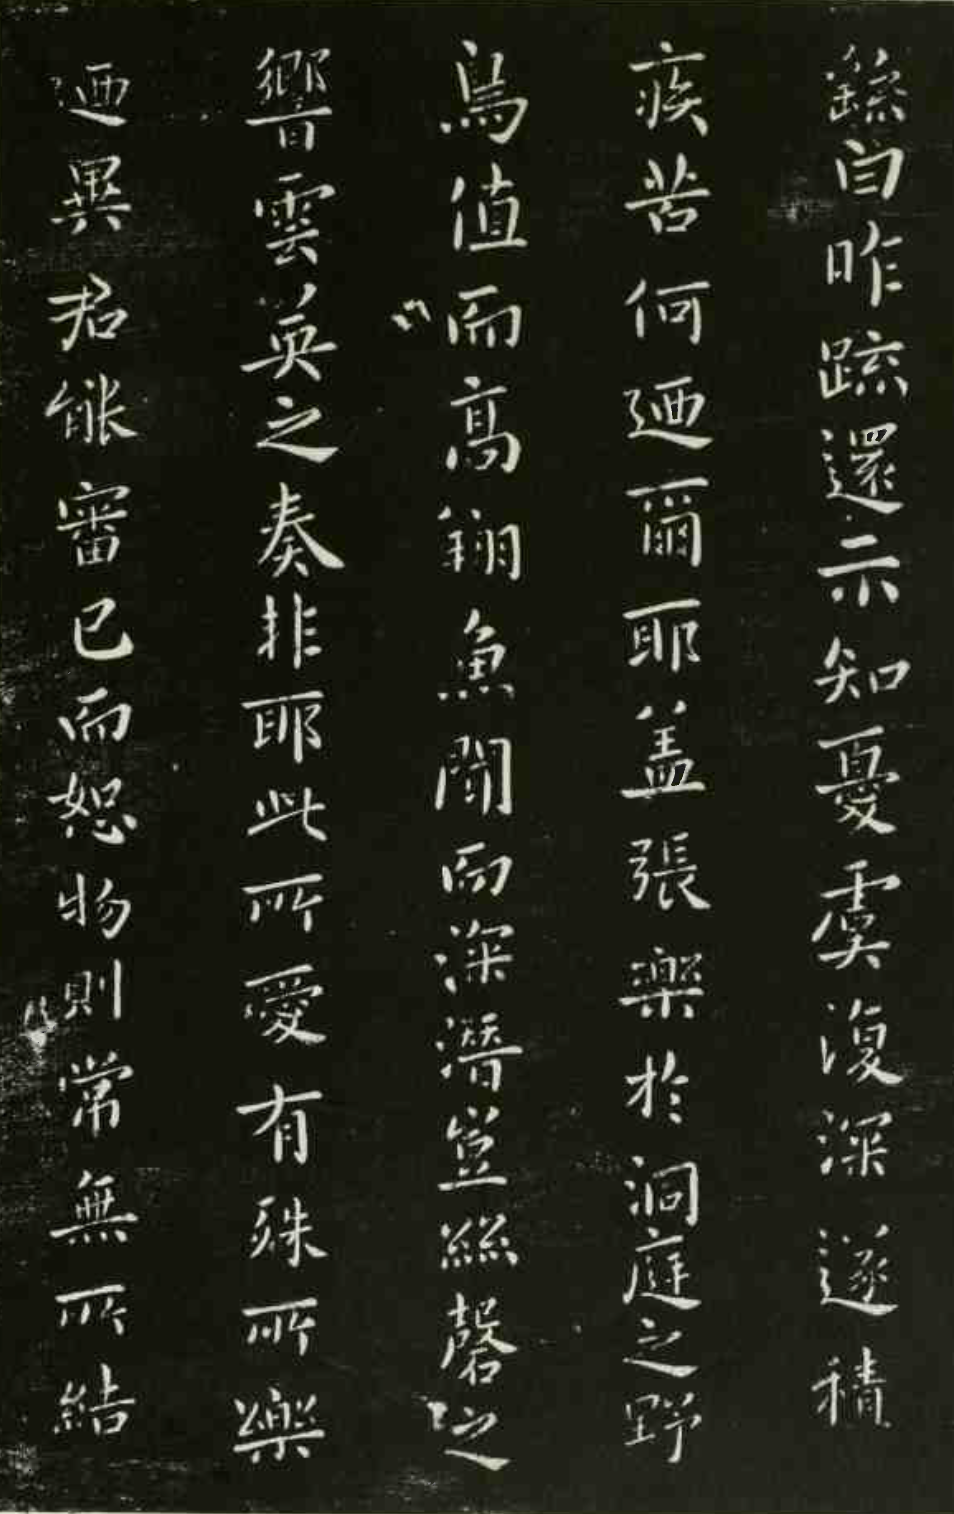 繇白昨疏還示知憂虞復深遂積
疾苦何迺爾耶蓋張樂於洞庭之野
鳥值而高翔魚聞而深潛豈絲磬之
響雲英之奏非耶此所愛有殊所樂
迺異君能審已而恕物則常無所結